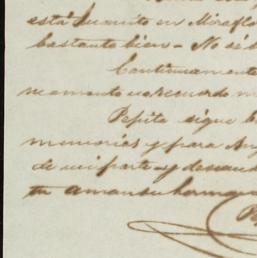 está Juanito en Miraflo
bastante bien - No sé s
Continuamente
recuerdo m
Pepita sigue b
memorias y para Ang
de mi parte y desean
tu amante hermano